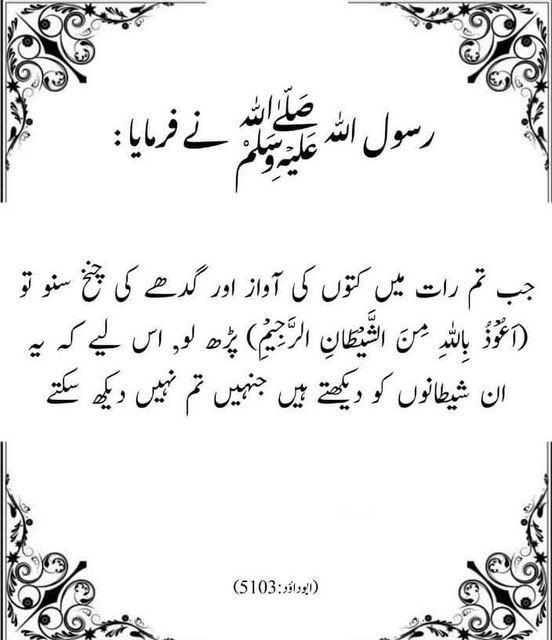 رسول اللہ صَلَّی اللہُ عَلَیْہِ وَسَلَّمْ نے فرمایا:
جب تم رات میں کتوں کی آواز اور گدھے کی چنخ سنو تو
(اَعُوْذُ بِاللّٰہِ مِنَ الشَّیْطَانِ الرَّجِیْمِ) پڑھ لو, اس لیے کہ یہ
ان شیطانوں کو دیکھتے ہیں جنہیں تم نہیں دیکھ سکتے
(ابوداؤد:5103)